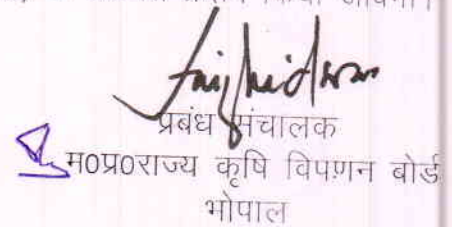 किया जायेगा।
प्रबंध संचालक
म0प्र0राज्य कृषि विपणन बोर्ड
भोपाल